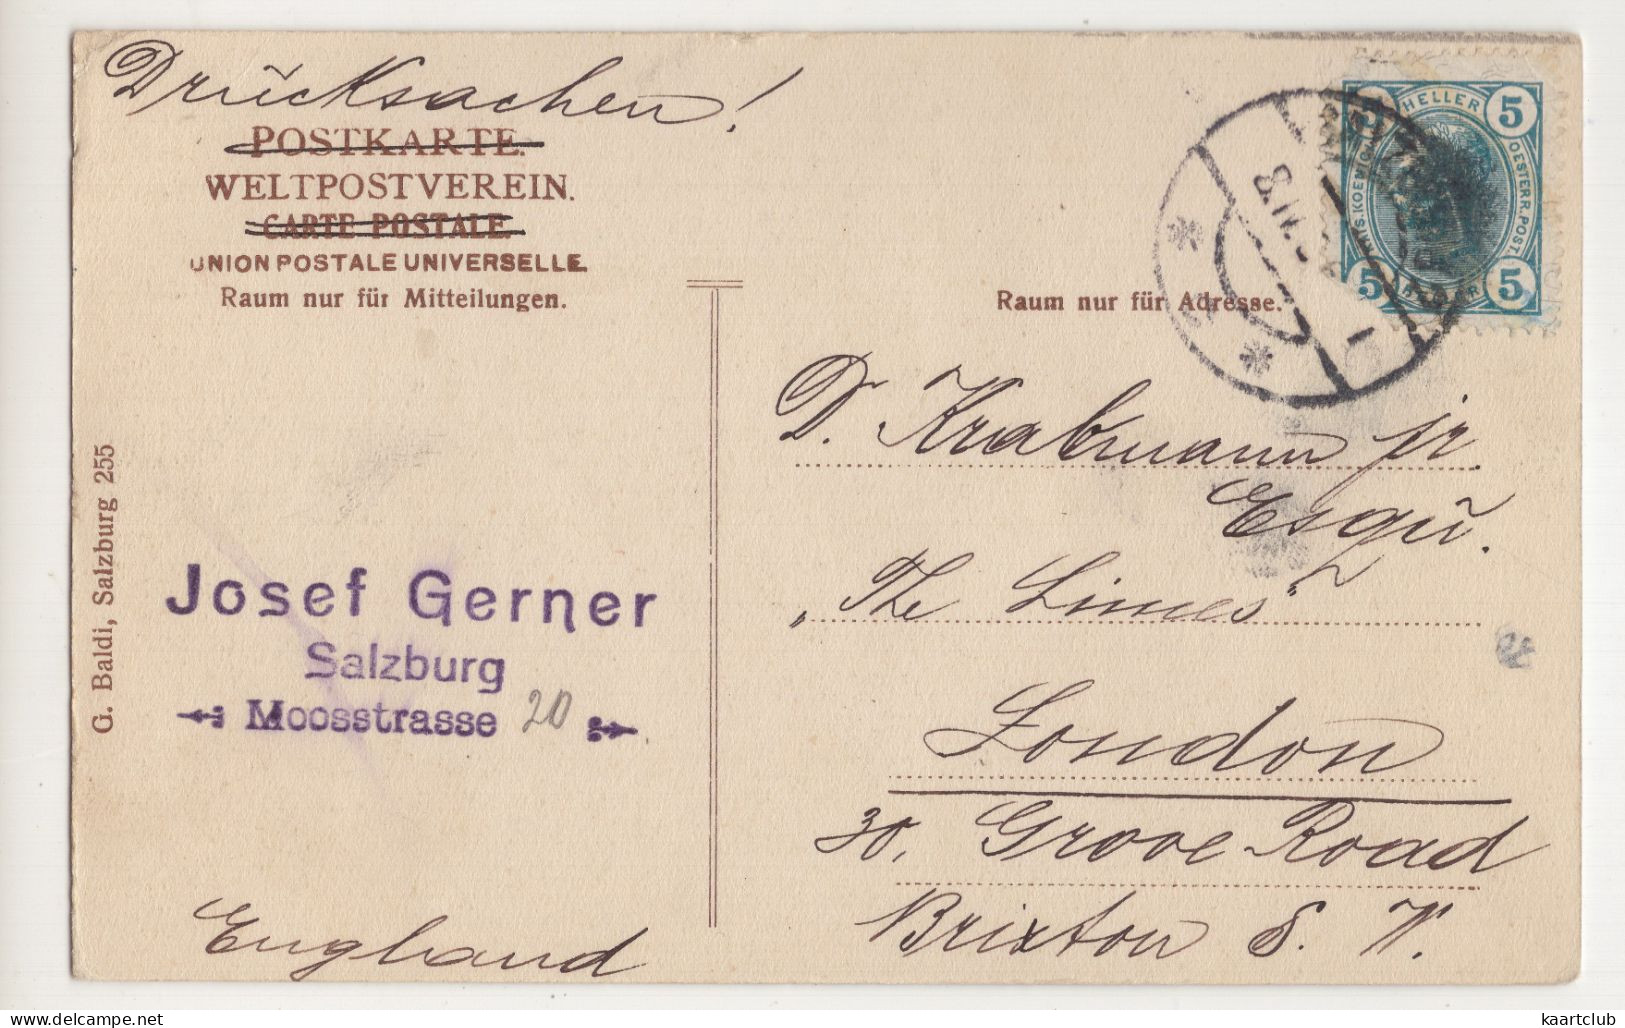 Drucksachen!
POSTKARTE.
WELTPOSTVEREIN.
CARTE POSTALE.
UNION POSTALE UNIVERSELLE.
Raum nur für Mitteilungen.
Raum nur für Adresse.
HELLER
5 5
OESTERR. POST.
5 5
8. IV.
D. Krabmann jr.
Esqu.
"The Limes"
London
30, Grove Road
Brixton S. W.
England
Josef Gerner
Salzburg
Moosstrasse 20
G. Baldi, Salzburg 255
kaartclub